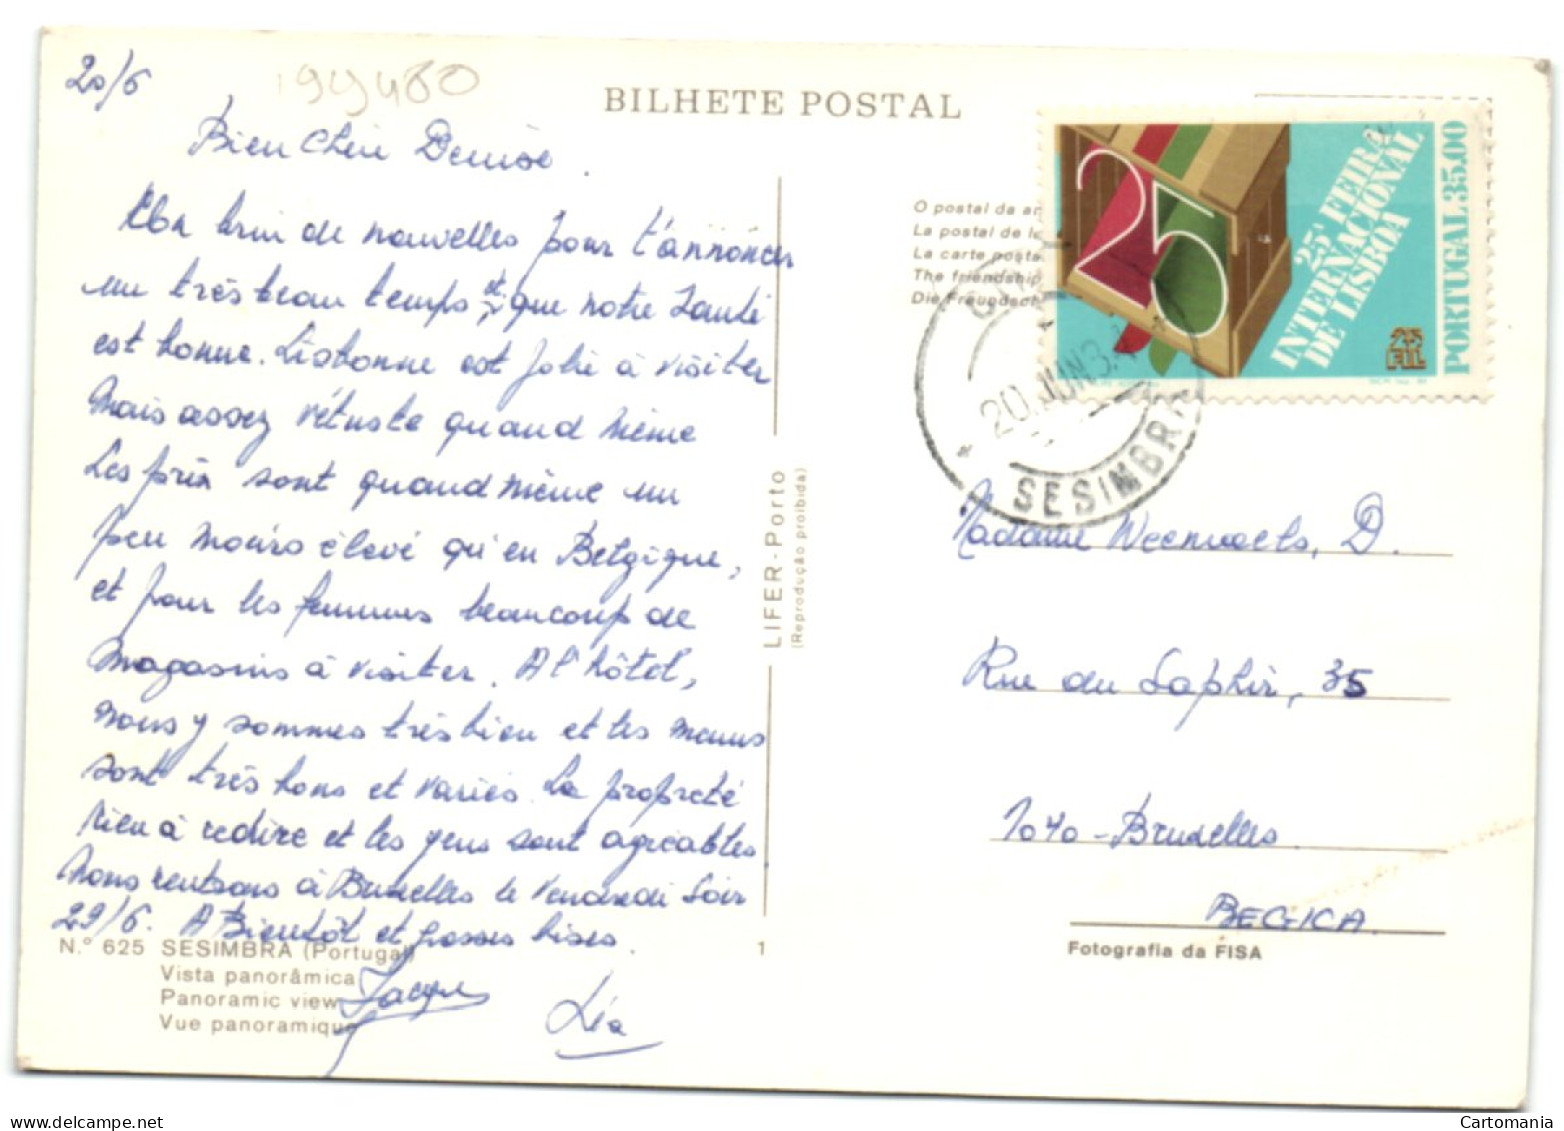 20/6
199480
BILHETE POSTAL
Bien Chère Denise.
brin de nouvelles pour t'annoncer
un très beau temps et que notre Santé
est bonne. Lisbonne est Jolie à visiter
Mais assez vétuste quand même
Les prix sont quand même un
peu moins élevé qu'en Belgique,
et pour les femmes beaucoup de
Magasins à visiter. A l'hôtel,
nous y sommes très bien et les menus
sont très bons et variés. La propreté
Rien à redire et les gens sont agréables
Nous rentrons à Bruxelles le Vendredi Soir
29/6. A Bientôt et grosses bises.
Jacques
Léa
N.º 625 SESIMBRA (Portugal)
Vista panorâmica
Panoramic view
Vue panoramique
1
LIFER - Porto
(Reprodução proibida)
O postal da am
La postal de la
La carte posta
The friendship
Die Freundsch
25
25ª FEIRA
INTERNACIONAL
DE LISBOA
PORTUGAL 35.00
25
FIL
20.JUN.84
SESIMBRA
Madame Weenvaels, D.
Rue du Saphir, 35
1040 - Bruxelles
BEGICA.
Fotografia da FISA
Cartomania